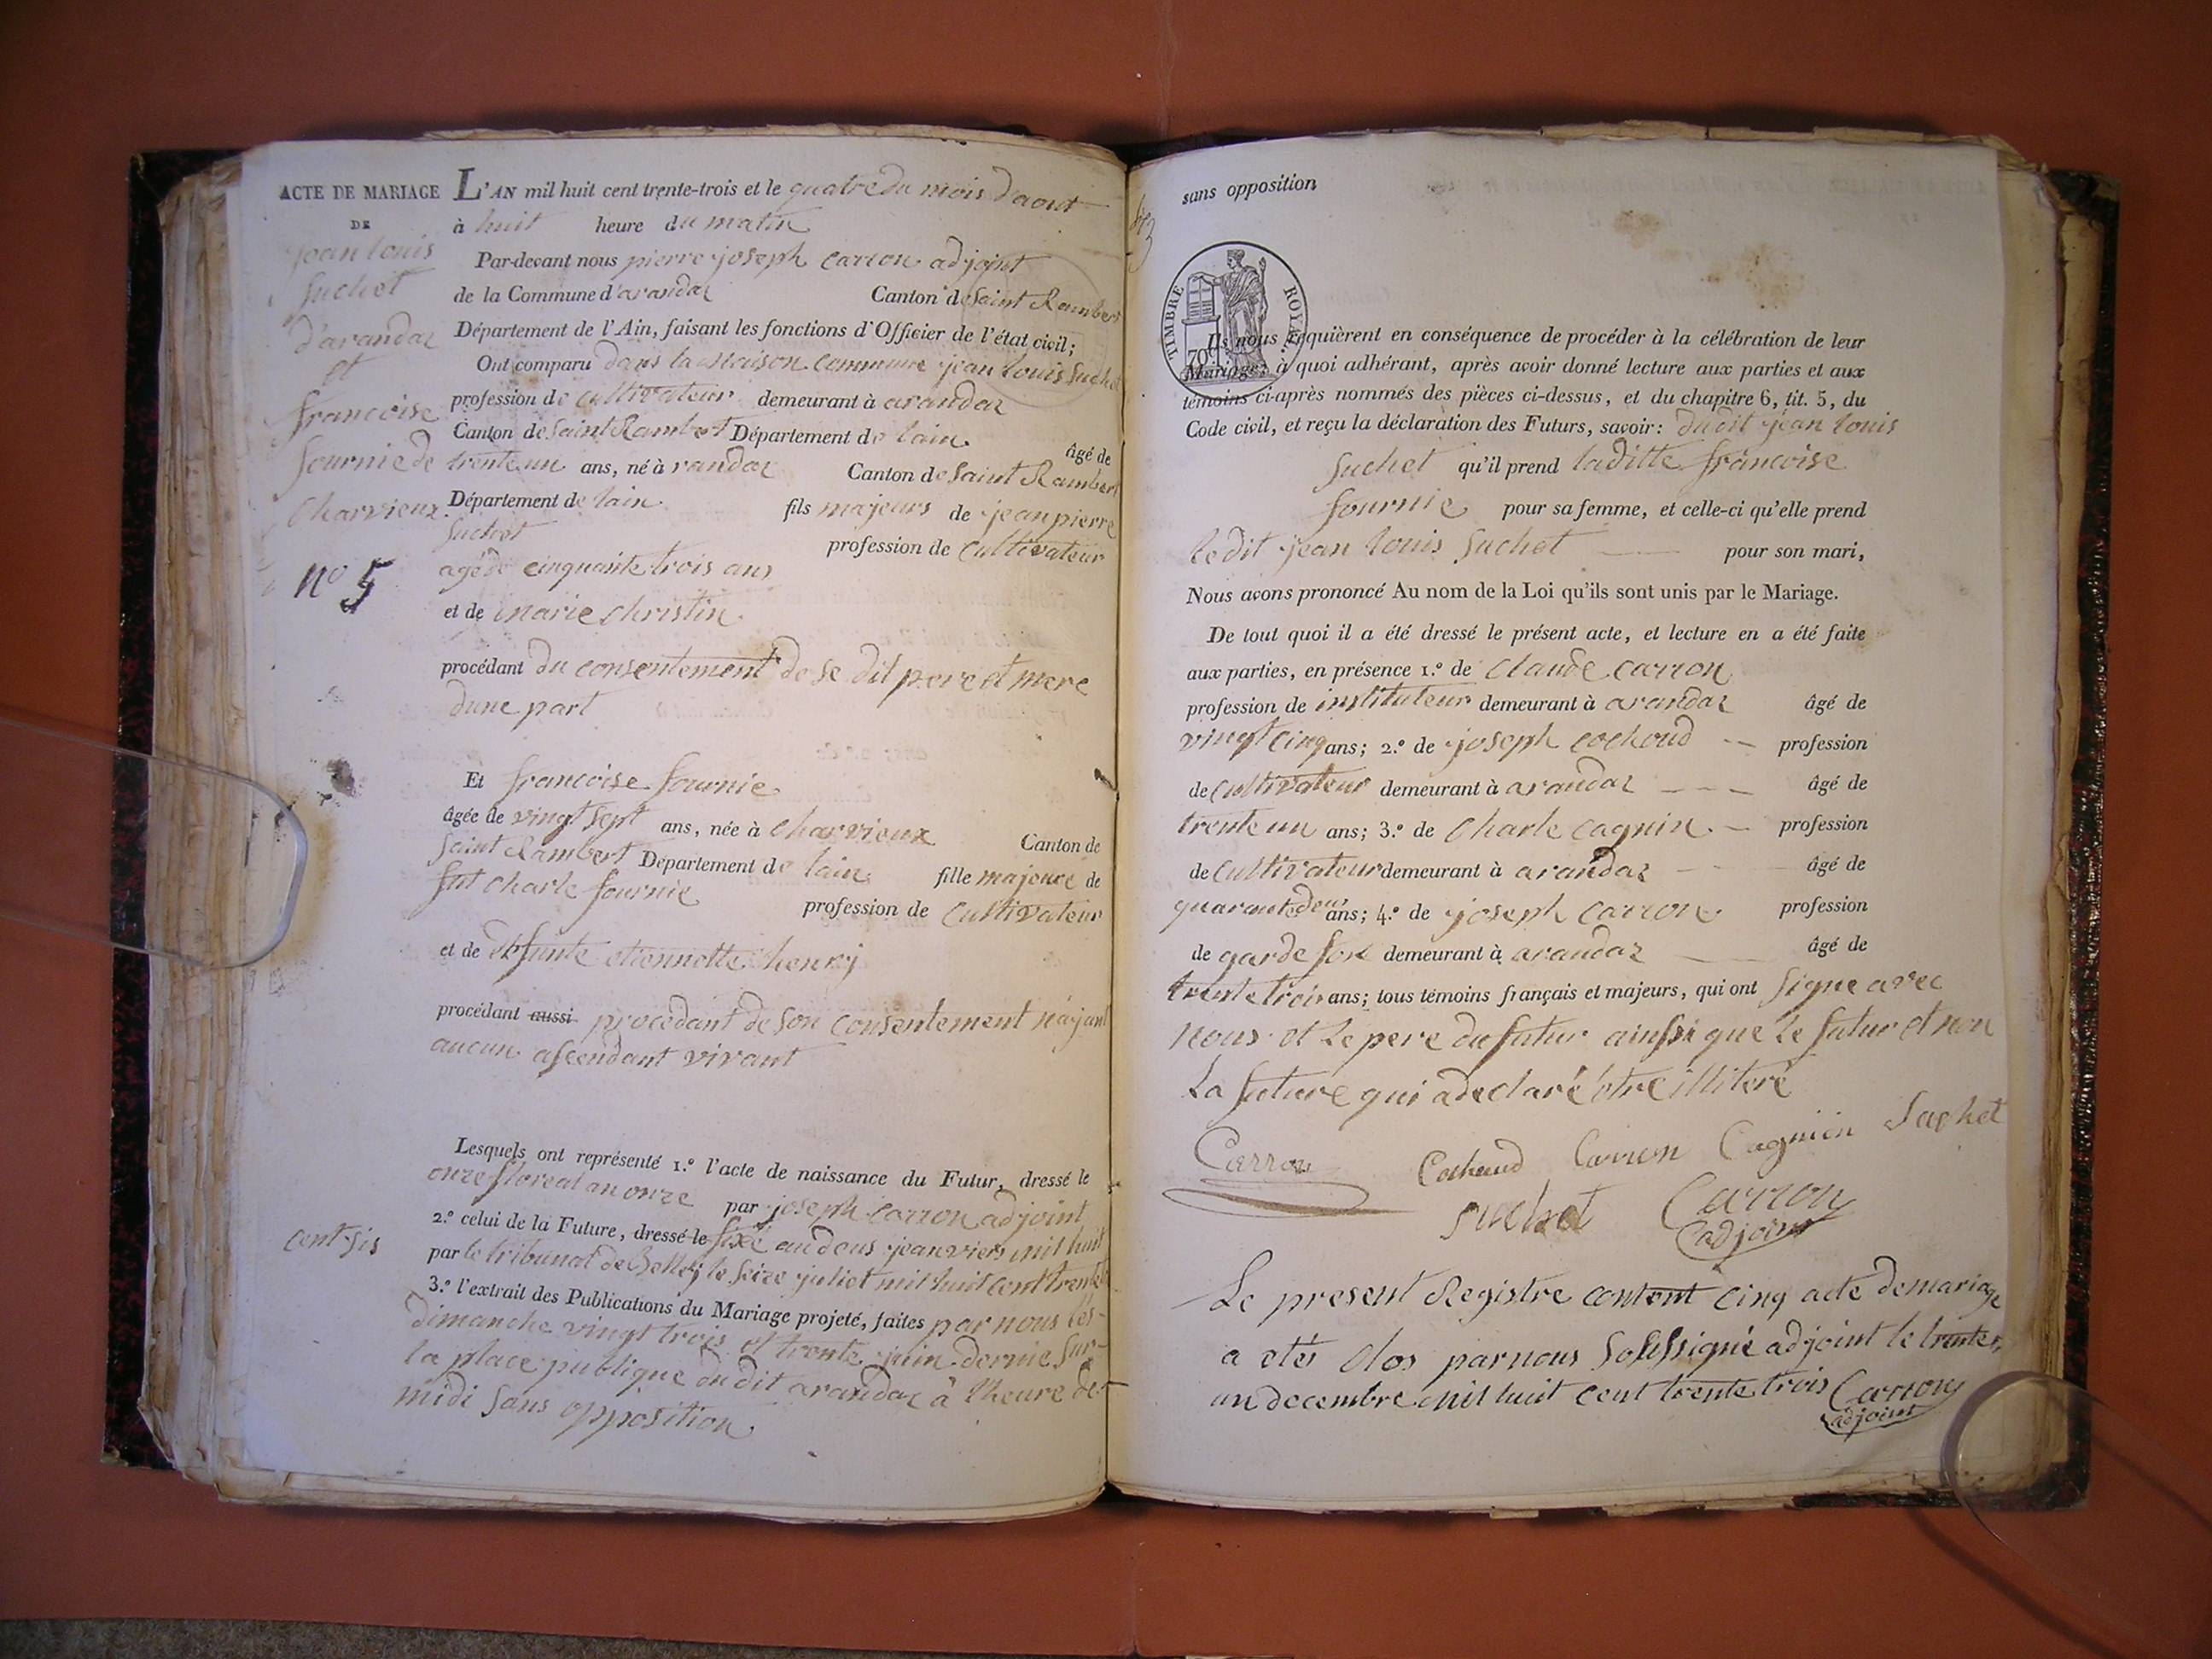 ACTE DE MARIAGE
DE
jean louis
Suchet
d'arandaz
et
francoise
fournie de
Charvieux
n° 5
cent sis
L'AN mil huit cent trente-trois et le quatre du mois d'aout
à huit heure du matin
Par-devant nous pierre joseph carron adjoint
de la Commune d'arandaz Canton de Saint Rambert
Département de l'Ain, faisant les fonctions d'Officier de l'état civil;
Ont comparu dans la maison commune jean louis Suchet
profession de cultivateur demeurant à arandaz
Canton de Saint Rambert Département de lain âgé de
trente un ans, né à randaz Canton de Saint Rambert
Département de lain fils majeurs de jean pierre
Suchet profession de Cultivateur
agé de cinquante trois ans
et de marie christin
procédant du consentement de se dit pere et mere
dune part
Et francoise fournie
âgée de vingt sept ans, née à Charvieux Canton de
Saint Rambert Département de lain fille majeure de
fut Charle fournie profession de Cultivateur
et de defunte etiennette henrij
procédant aussi procedant de son consentement n'ajant
aucun ascendant vivant
Lesquels ont représenté 1.º l'acte de naissance du Futur, dressé le
onze floreal an onze par joseph carron adjoint
2.º celui de la Future, dressé le fixé au deus jeanviers mil huit
par le tribunal de Belley le seize juliet mil huit cent trente
3.º l'extrait des Publications du Mariage projeté, faites par nous les
dimanche vingt trois et trente juin dernie sur
la place publique du dit arandaz à l'heure de
midi sans opposition
sans opposition
TIMBRE ROYAL
70
Ils nous requièrent en conséquence de procéder à la célébration de leur
Mariage; à quoi adhérant, après avoir donné lecture aux parties et aux
témoins ci-après nommés des pièces ci-dessus, et du chapitre 6, tit. 5, du
Code civil, et reçu la déclaration des Futurs, savoir: dudit jean louis
Suchet qu'il prend laditte francoise
fournie pour sa femme, et celle-ci qu'elle prend
le dit jean louis Suchet pour son mari,
Nous avons prononcé Au nom de la Loi qu'ils sont unis par le Mariage.
De tout quoi il a été dressé le présent acte, et lecture en a été faite
aux parties, en présence 1.º de Claude carron
profession de instituteur demeurant à arandaz âgé de
vingt cinq ans; 2.º de joseph cochoud profession
de Cultivateur demeurant à arandaz âgé de
trente un ans; 3.º de Charle cagnin profession
de Cultivateur demeurant à arandaz âgé de
quarante deux ans; 4.º de joseph carron profession
de garde fort demeurant à arandaz âgé de
trente trois ans; tous témoins français et majeurs, qui ont signe avec
nous et le pere du futur ainssi que le futur et non
La future qui a declaré être illiteré
Carron Cochaud Carron Cagnien Suchet
Suchet Carron
adjoint
Le present Registre content cinq acte de mariage
a etés clos par nous Soussigné adjoint le trente
un decembre mil huit cent trente trois Carron
adjoint